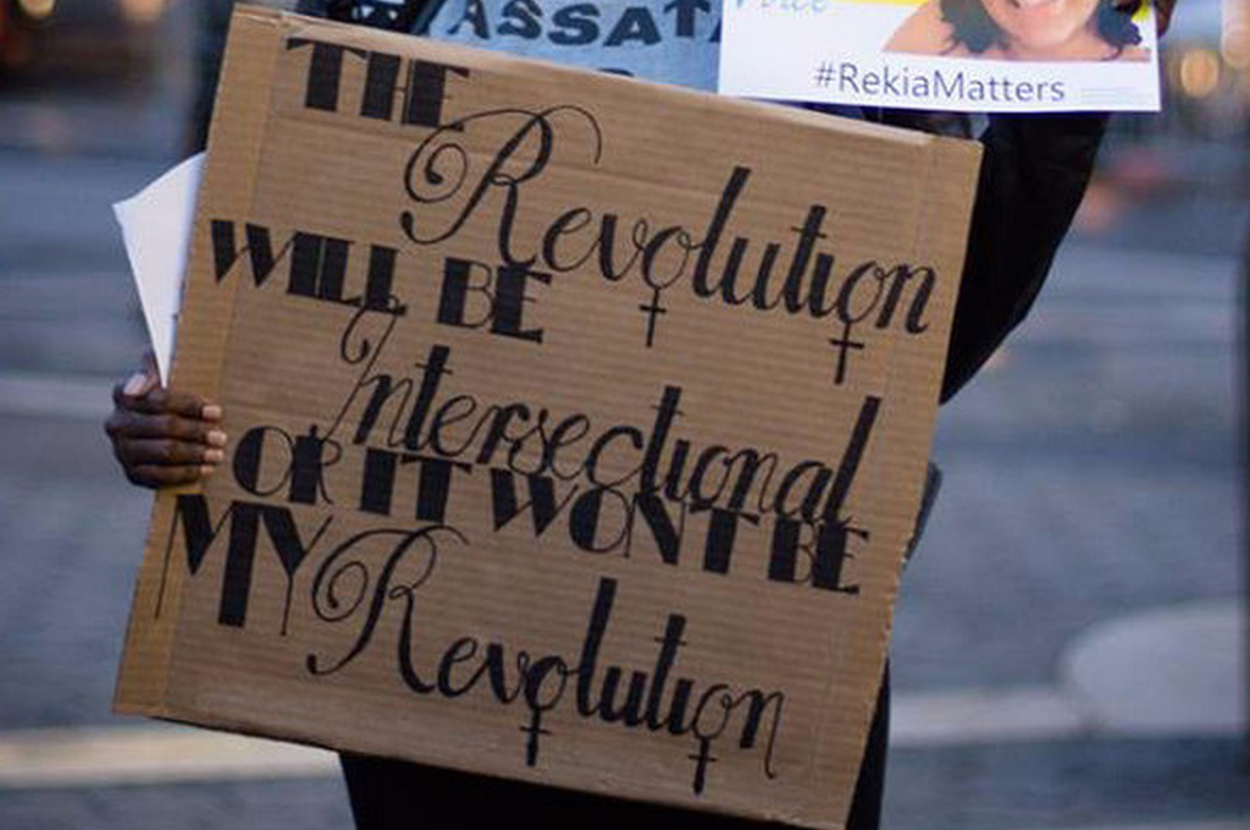 ASSATA
Voice
#RekiaMatters
THE
Revolution
WILL BE
Intersectional
OR IT WON'T BE
MY Revolution